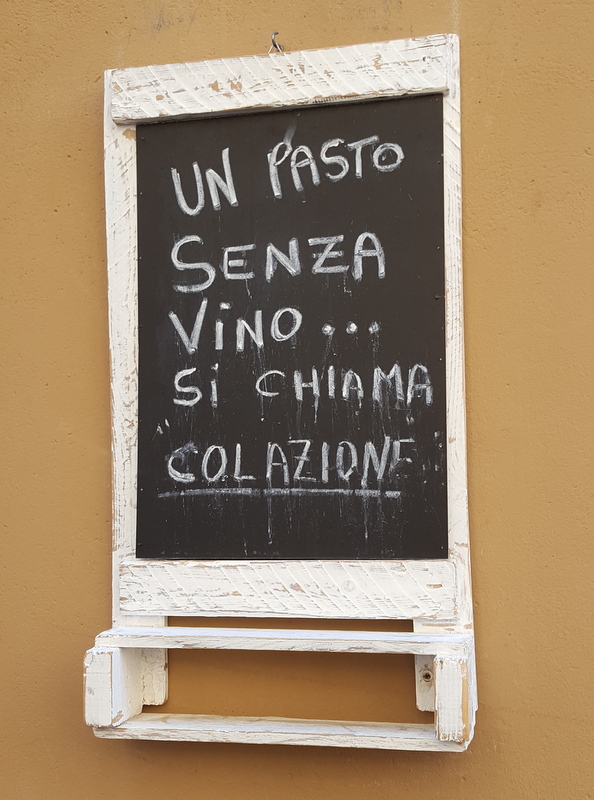 UN PASTO
SENZA
ViNO...
Si CHIAMA
"COLAZIONE"